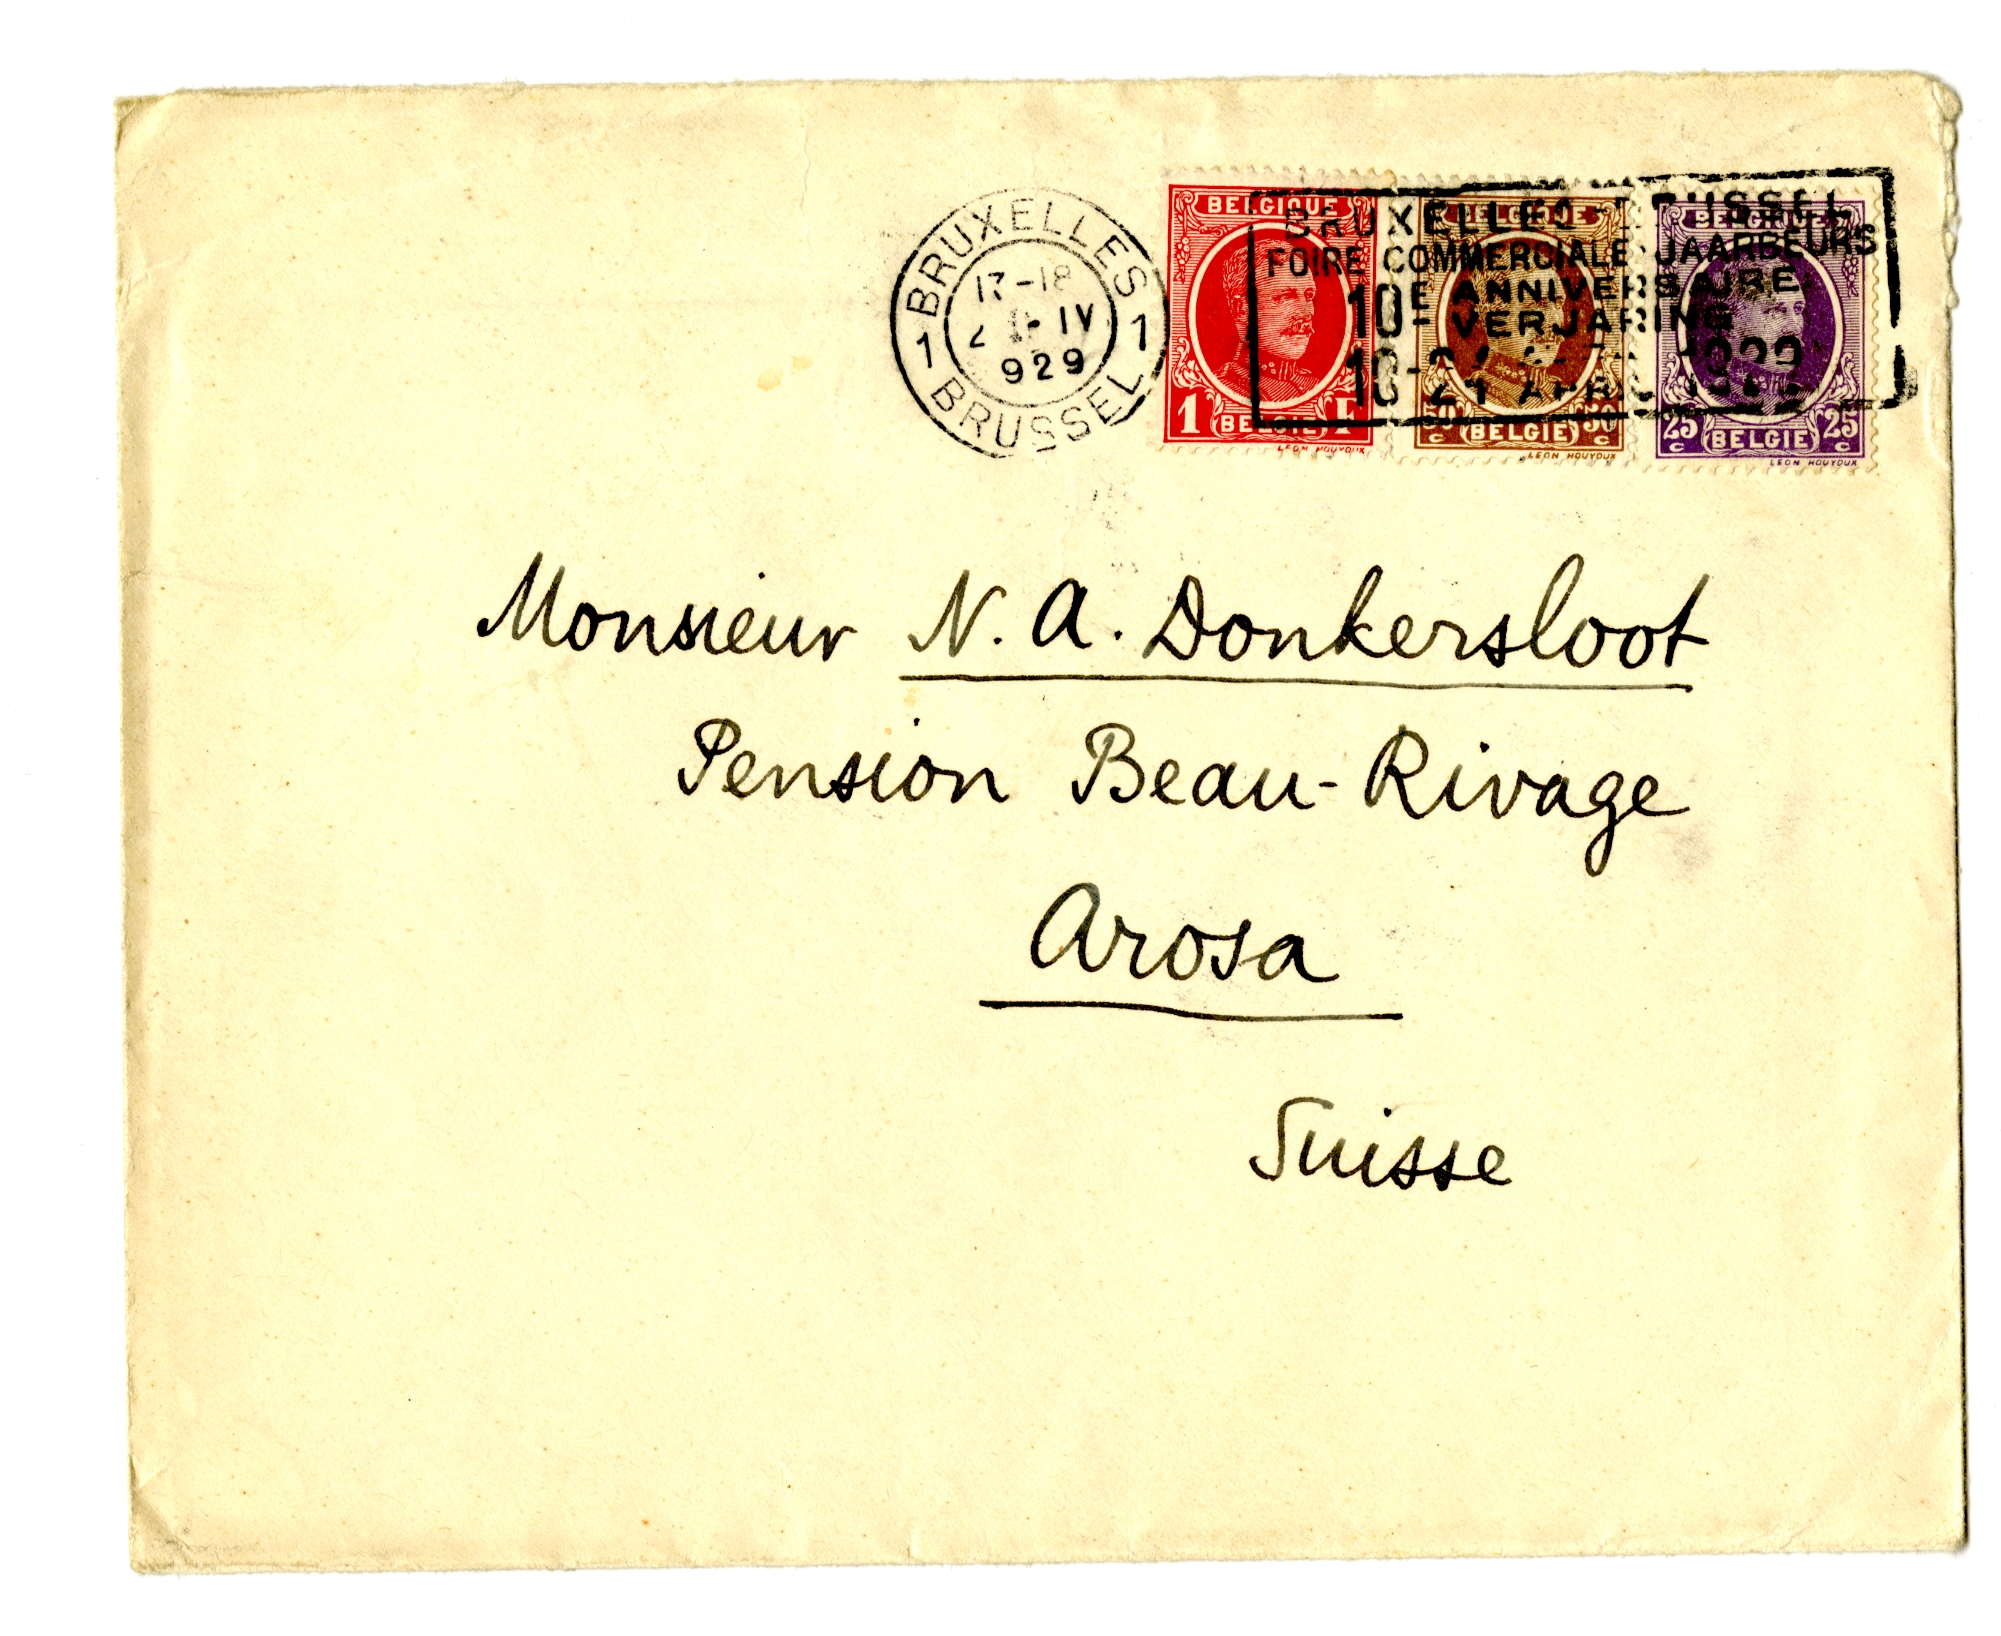 BRUXELLES
17-18
IV
929
1 1
BRUSSEL
BRUXELLES-BRUSSEL
FOIRE COMMERCIALE JAARBEURS
10E ANNIVERSAIRE
10E VERJARING
10-24 APRIL 1929
BELGIQUE
1 F
BELGIË
LEON HOUYOUX
BELGIQUE
50 c 50 c
BELGIË
LEON HOUYOUX
BELGIQUE
25 c 25 c
BELGIË
LEON HOUYOUX
Monsieur N. A. Donkersloot
Pension Beau-Rivage
Arosa
Suisse